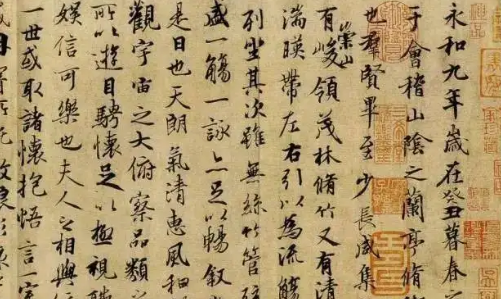 永和九年歲在癸丑暮春之
于會稽山陰之蘭亭脩
也羣賢畢至少長咸集
有崇山峻領茂林脩竹又有清
湍暎帶左右引以為流觴
列坐其次雖無絲竹管
盛一觴一詠亦足以暢叙
是日也天朗氣清惠風和
觀宇宙之大俯察品類之
所以遊目騁懷足以極視聽
娛信可樂也夫人之相與
一世或取諸懷抱悟言一室